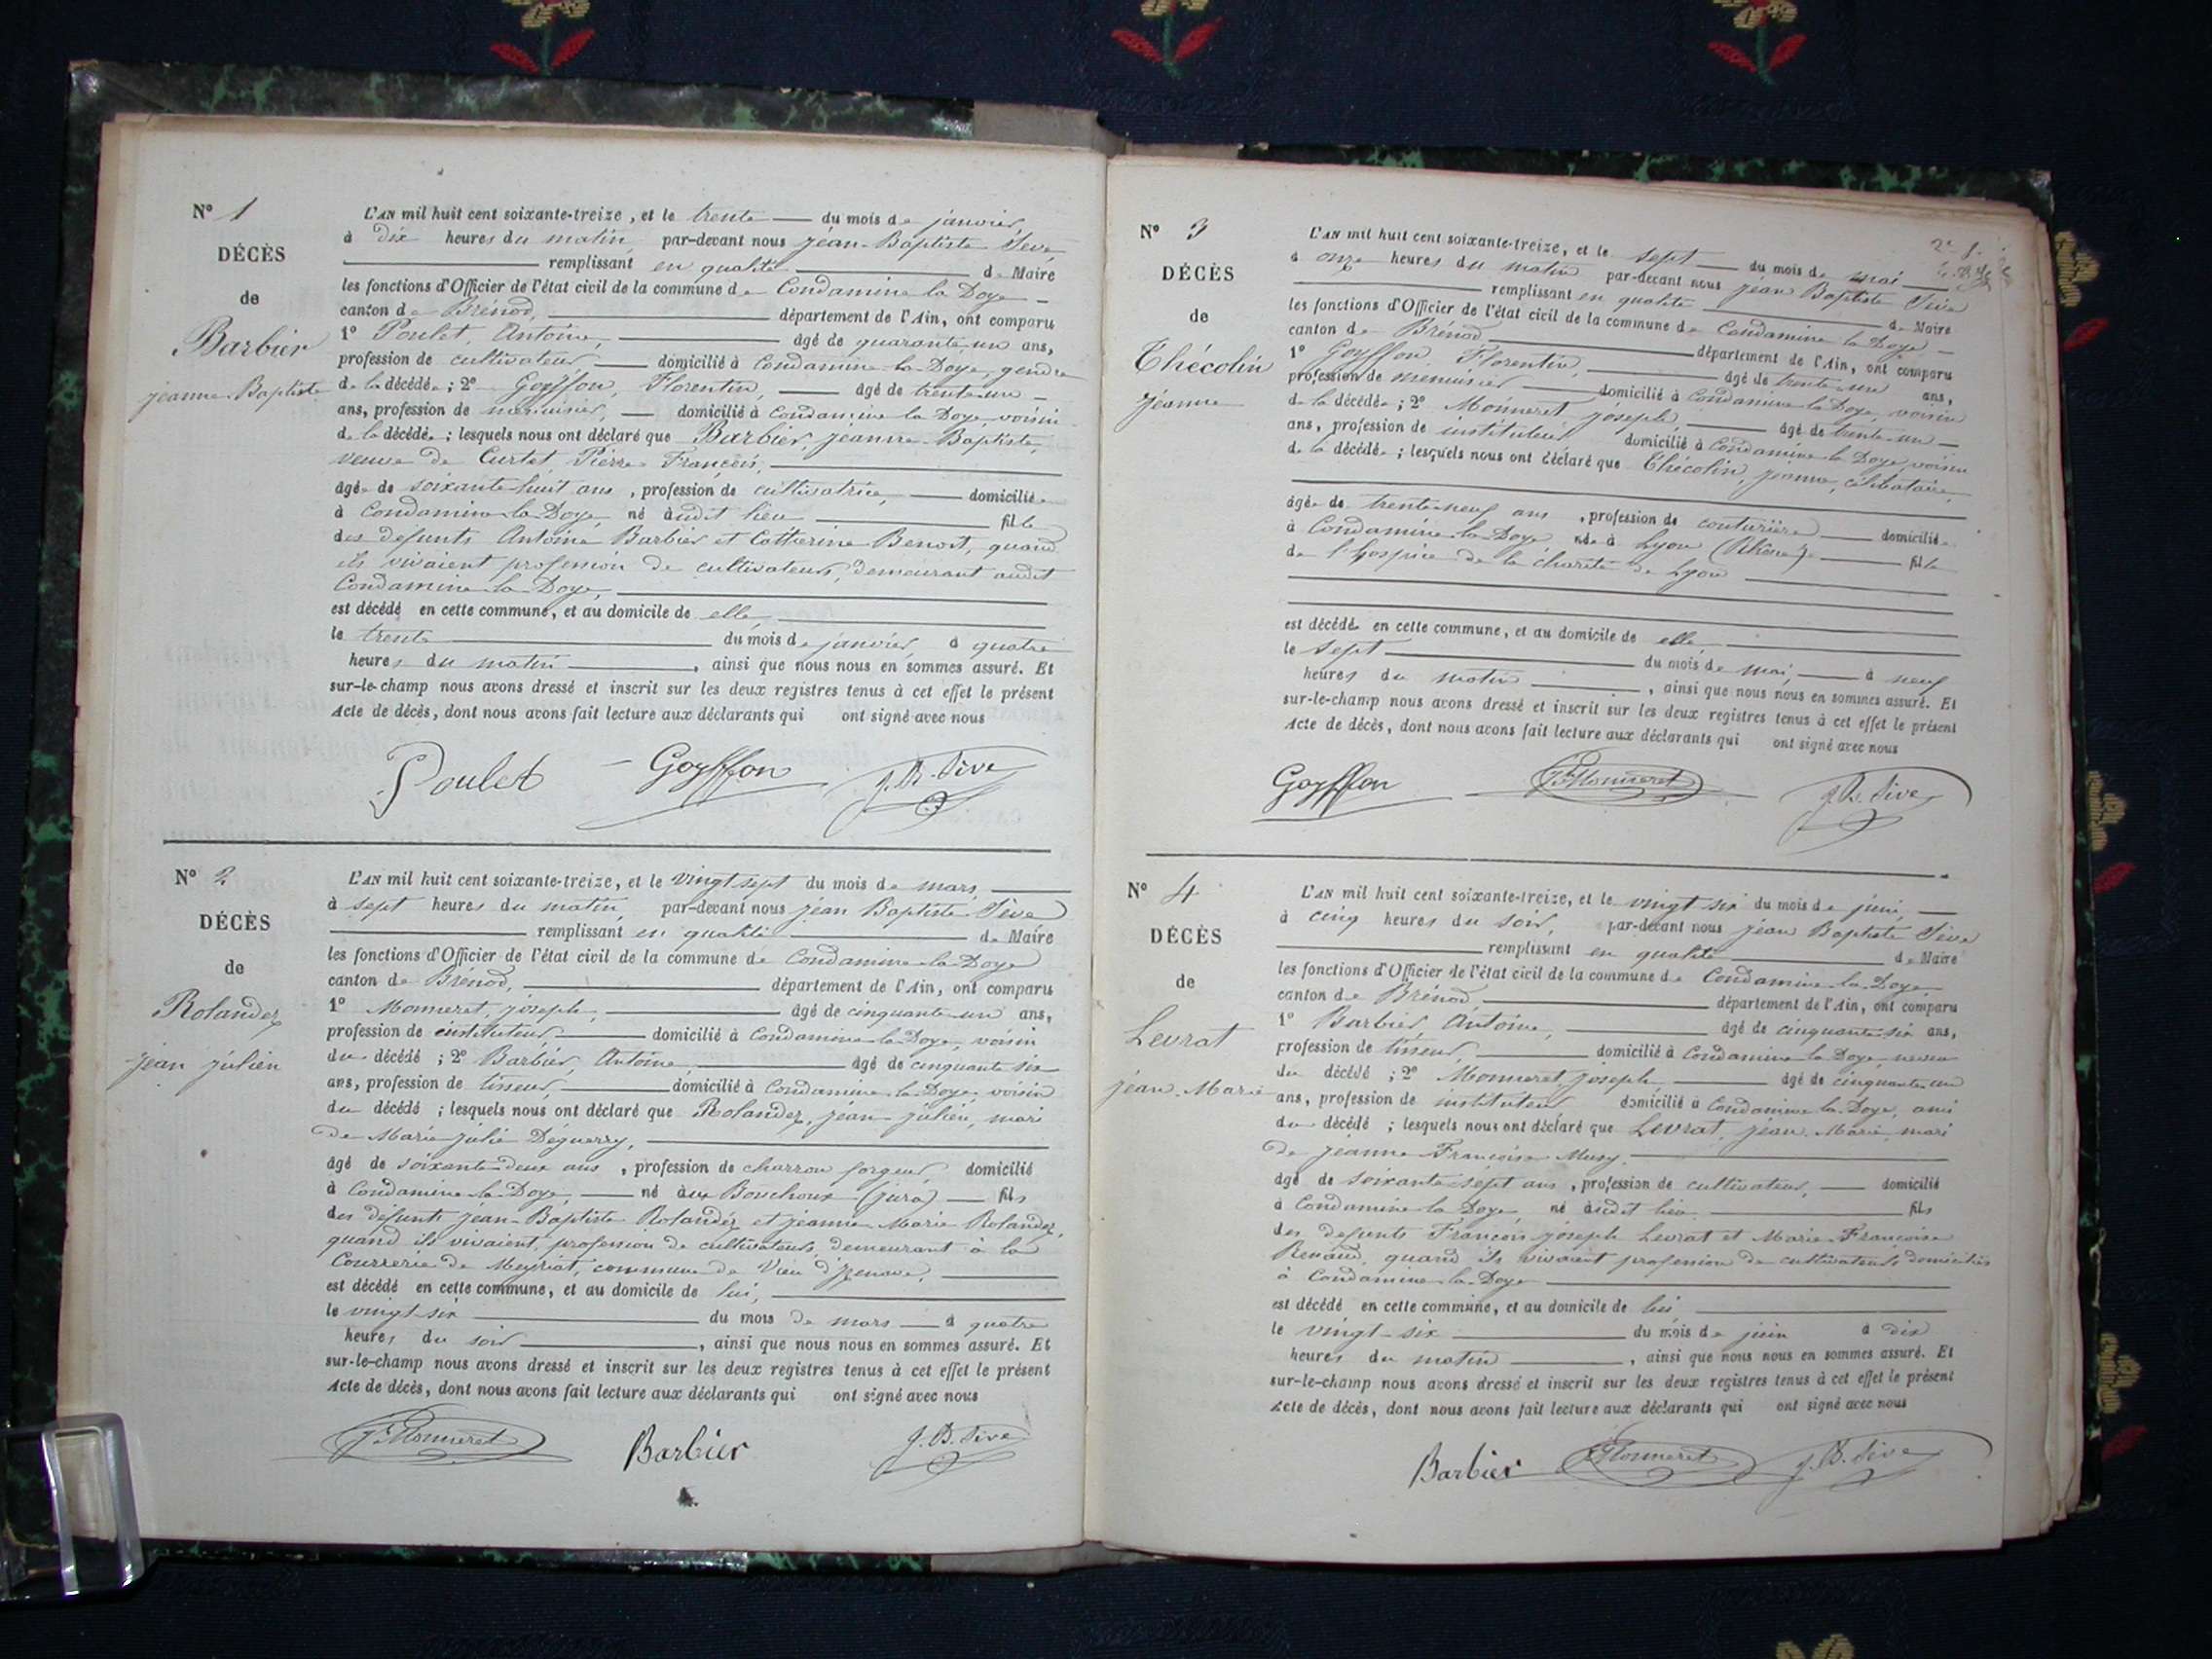 N° 1
DÉCÈS
de
Barbier
jeanne-Baptiste
L'AN mil huit cent soixante-treize, et le trente du mois de janvier,
à dix heures du matin, par-devant nous jean-Baptiste Sève
remplissant en qualité de Maire
les fonctions d'Officier de l'état civil de la commune de Condamine-la-Doye
canton de Brénod, département de l'Ain, ont comparu
1° Poulet, Antoine, âgé de quarante un ans,
profession de cultivateur, domicilié à Condamine-la-Doye, gendre
de la décédée; 2° Goyffon, Florentin, âgé de trente-un
ans, profession de menuisier, domicilié à Condamine la Doye, voisin
de la décédée; lesquels nous ont déclaré que Barbier, jeanne-Baptiste,
veuve de Curtet, Pierre François,
âgée de soixante-huit ans, profession de cultivatrice, domiciliée
à Condamine-la-Doye, né audit lieu fille
des défunts Antoine Barbier et Catherine Benoit, quand
ils vivaient profession de cultivateurs, demeurant audit
Condamine-la-Doye,
est décédé en cette commune, et au domicile de elle,
le trente du mois de janvier, à quatre
heures du matin, ainsi que nous nous en sommes assuré. Et
sur-le-champ nous avons dressé et inscrit sur les deux registres tenus à cet effet le présent
Acte de décès, dont nous avons fait lecture aux déclarants qui ont signé avec nous
Poulet Goyffon J. B. Sève
N° 2
DÉCÈS
de
Rolandez
jean julien
L'AN mil huit cent soixante-treize, et le vingt sept du mois de mars
à sept heures du matin, par-devant nous jean Baptiste Sève
remplissant en qualité de Maire
les fonctions d'Officier de l'état civil de la commune de Condamine-la-Doye
canton de Brénod, département de l'Ain, ont comparu
1° Monneret, joseph, âgé de cinquante-un ans,
profession de instituteur, domicilié à Condamine-la-Doye, voisin
du décédé; 2° Barbier, Antoine, âgé de cinquante six
ans, profession de tisseur, domicilié à Condamine-la-Doye, voisin
du décédé; lesquels nous ont déclaré que Rolandez, jean-julien, mari
de Marie-julie Déguerry,
âgé de soixante-deux ans, profession de charron forgeur, domicilié
à Condamine-la-Doye, né aux Bouchoux (jura) fils
des défunts jean-Baptiste Rolandez et jeanne-Marie Rolandez,
quand ils vivaient, profession de cultivateurs, demeurant à la
Courrerie de Meyriat, commune de Vieu d'Izenave,
est décédé en cette commune, et au domicile de lui,
le vingt-six du mois de mars à quatre
heures du soir, ainsi que nous nous en sommes assuré. Et
sur-le-champ nous avons dressé et inscrit sur les deux registres tenus à cet effet le présent
Acte de décès, dont nous avons fait lecture aux déclarants qui ont signé avec nous
J. Monneret Barbier J. B. Sève
N° 3
DÉCÈS
de
Thécolin
jeanne
L'AN mil huit cent soixante-treize, et le sept du mois de mai
à onze heures du matin par-devant nous jean Baptiste Sève
remplissant en qualité de Maire
les fonctions d'Officier de l'état civil de la commune de Condamine la Doye
canton de Brénod département de l'Ain, ont comparu
1° Goyffon Florentin, âgé de trente-un ans,
profession de menuisier domicilié à Condamine la Doye, voisin
de la décédée; 2° Monneret joseph, âgé de trente-un
ans, profession de instituteur domicilié à Condamine la Doye, voisin
de la décédée; lesquels nous ont déclaré que Thécolin, jeanne, célibataire,
âgée de trente-neuf ans, profession de couturière domiciliée
à Condamine-la-Doye, née à Lyon (Rhône) fille
de l'hospice de la charité de Lyon
est décédée en cette commune, et au domicile de elle,
le sept du mois de mai, à neuf
heures du matin, ainsi que nous nous en sommes assuré. Et
sur-le-champ nous avons dressé et inscrit sur les deux registres tenus à cet effet le présent
Acte de décès, dont nous avons fait lecture aux déclarants qui ont signé avec nous
Goyffon J. Monneret J. B. Sève
N° 4
DÉCÈS
de
Levrat
jean-Marie
L'AN mil huit cent soixante-treize, et le vingt six du mois de juin,
à cinq heures du soir, par-devant nous jean Baptiste Sève
remplissant en qualité de Maire
les fonctions d'Officier de l'état civil de la commune de Condamine-la-Doye
canton de Brénod département de l'Ain, ont comparu
1° Barbier, Antoine, âgé de cinquante-six ans,
profession de tisseur, domicilié à Condamine la Doye, neveu
du décédé; 2° Monneret joseph, âgé de cinquante-un
ans, profession de instituteur domicilié à Condamine-la-Doye, ami
du décédé; lesquels nous ont déclaré que Levrat, jean-Marie, mari
de jeanne Françoise Musy.
âgé de soixante-sept ans, profession de cultivateur, domicilié
à Condamine la Doye, né audit lieu fils
des défunts François joseph Levrat et Marie-Françoise
Renaud, quand ils vivaient profession de cultivateurs domiciliés
à Condamine-la-Doye
est décédé en cette commune, et au domicile de lui
le vingt-six du mois de juin à dix
heures du matin, ainsi que nous nous en sommes assuré. Et
sur-le-champ nous avons dressé et inscrit sur les deux registres tenus à cet effet le présent
Acte de décès, dont nous avons fait lecture aux déclarants qui ont signé avec nous
Barbier J. Monneret J. B. Sève